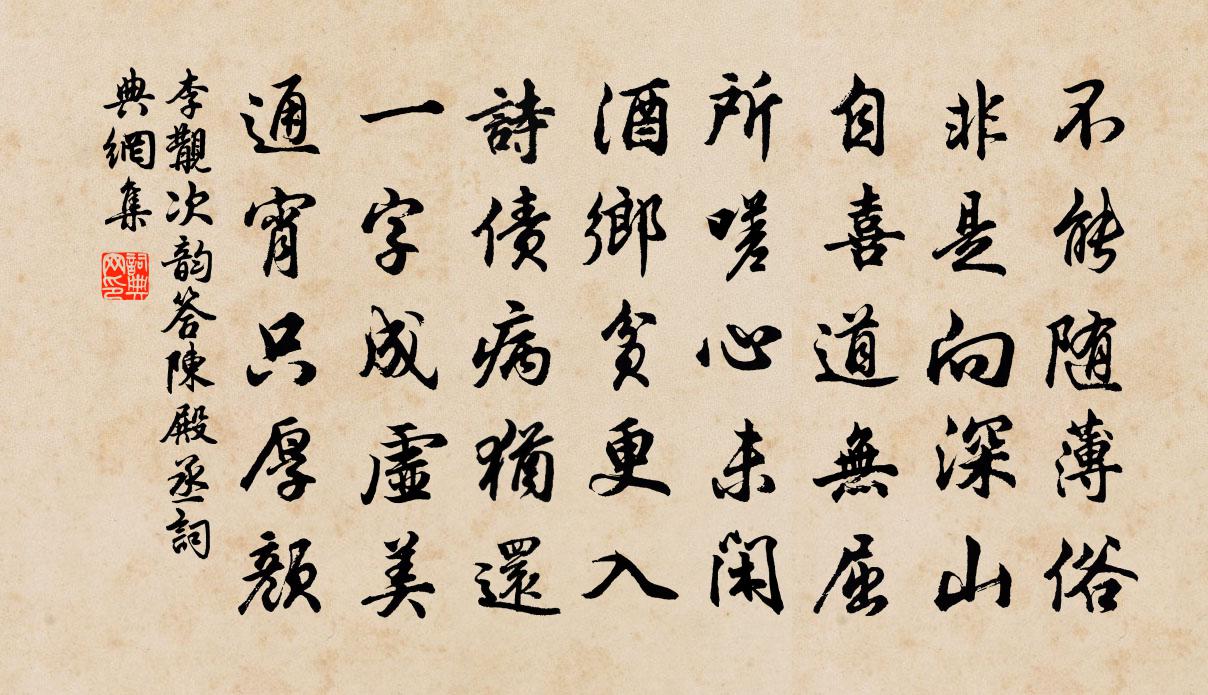 不能随薄俗
非是向深山
自喜道無屈
所嗟心未閑
酒鄉貧更入
詩債病猶還
一字成虛美
通宵只厚顔
李覯次韵答陳殿丞詞
典網集
詞典
网印